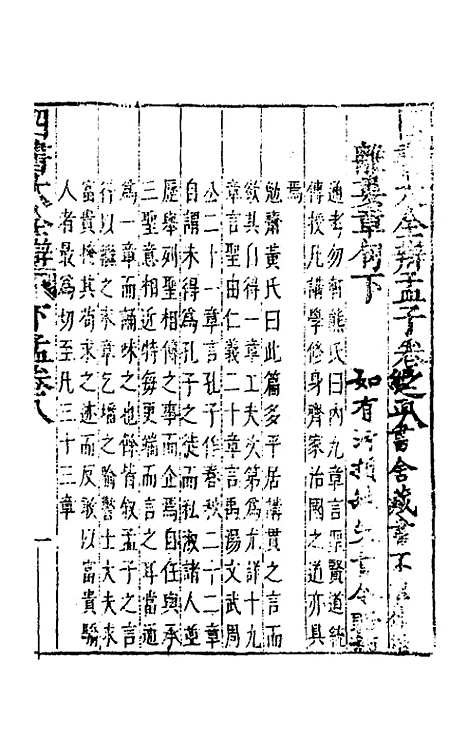 四書大全辯孟子卷之八
經正書舍藏書不
離婁章句下
如有
通考勿軒熊氏曰內九章言聖賢道統
傳授凡講學修身齊家治國之道亦具
焉
勉齋黃氏曰此篇多平居講貫之言而
欲其自得一章工夫次第為尤詳十九
章言聖由仁義二十章言禹湯文武周
公二十一章言孔子作春秋二十二章
自謂未得為孔子之徒而私淑諸人並
歷舉列聖相傳之事而企焉自任與承
三聖意相近特每更端而言之耳當通
為一章而誦味之也餘皆叙孟子之言
行以雜之卒章乞墦之喻警士大夫求
富貴掩其苟求之迹而反敢以富貴驕
人者最為切至凡三十三章
四書大全辯 下孟卷八 一